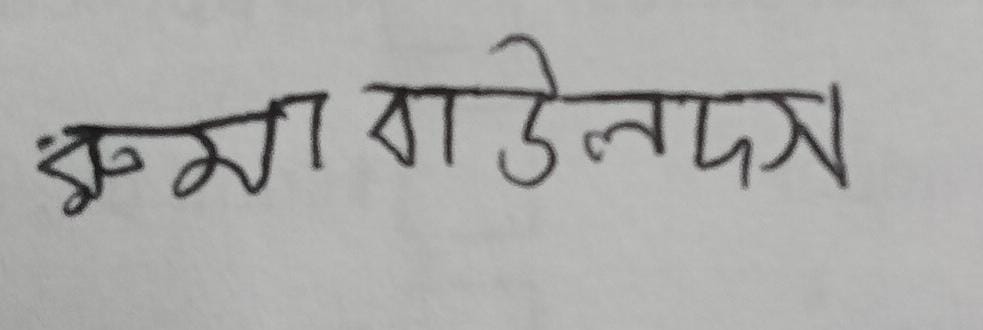 রুমা বাউলদস